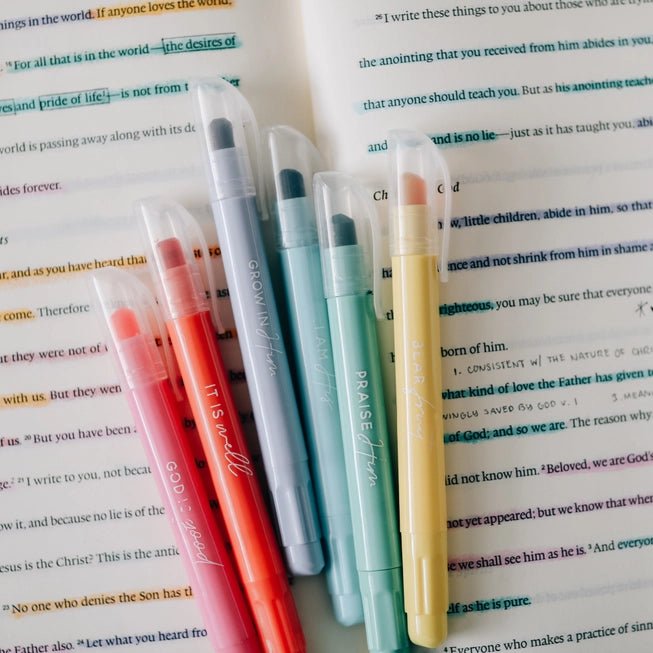 things in the world. If anyone loves the world,
¹⁶ For all that is in the world—the desires of
and pride of life—is not from
world is passing away along with its
abides forever.
and as you have heard that
come. Therefore
but they were not of
with us. But they were
of us. ²⁰ But you have been
²¹ I write to you, not because
know it, and because no lie is of the
Jesus is the Christ? This is the
²³ No one who denies the Son has
the Father also. ²⁴ Let what you heard from
²⁶ I write these things to you about those who are
the anointing that you received from him abides in you,
that anyone should teach you. But as his anointing
and is no lie—just as it has taught you,
God
little children, abide in him, so that
and not shrink from him in shame
righteous, you may be sure that everyone
born of him.
1. CONSISTENT W/ THE NATURE OF
what kind of love the Father has given
SAVED BY GOD V. 1
of God; and so we are. The reason why
did not know him. ² Beloved, we are God's
not yet appeared; but we know that when
we shall see him as he is. ³ And
as he is pure.
⁴ Everyone who makes a practice of
GOD IS good
IT IS well
GROW IN Him
I AM His
PRAISE Him
BEAR fruit